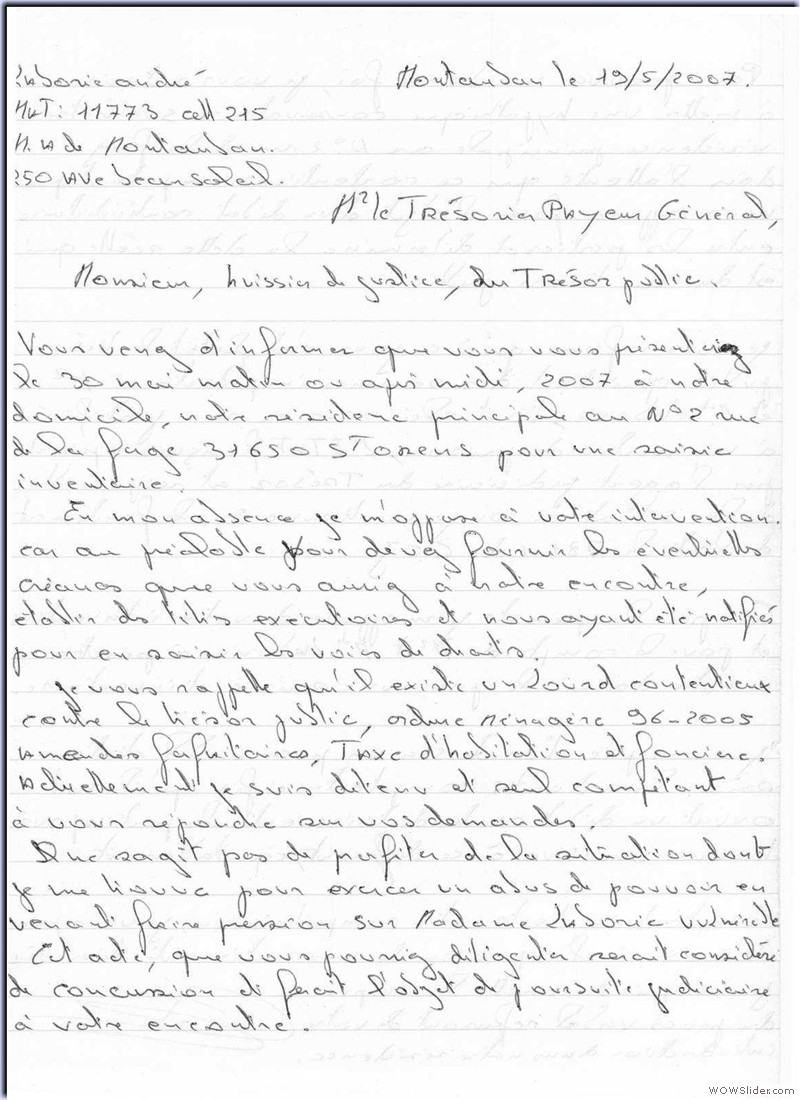 Laborie andré Montauban le 19/5/2007.
Mat: 11773 cell 215
M. A de Montauban.
250 Ave beausoleil.
Mr le TRÉSorier PAyeur Général,
Monsieur, huissier de justice, du TRÉSor public.
Vous venez d'informer que vous vous présenteriez
le 30 mai matin ou après midi, 2007 à notre
domicile, notre résidence principale au N°2 rue
de la forge 31650 ST ORENS pour une saisie
inventaire.
En mon absence je m'oppose à votre intervention.
car au préalable vous devez fournir les éventuelles
créances que vous auriez à notre encontre,
établir des titres exécutoires et nous ayant été notifiés
pour en saisir les voies de droits.
je vous rappelle qu'il existe un lourd contentieux
contre le trésor public, ordure Ménagère 96-2005
Amendes forfaitaires, TAxe d'habitation et foncière.
Actuellement je suis détenu et seul compétant
à vous répondre sur vos demandes.
Il ne sagit pas de profiter de la situation dont
je me trouve pour exercer un abus de pouvoir en
venant faire pression sur Madame Laborie vulnérable
Cet acte, que vous pourriez diligenter serait considéré
de concussion et ferait l'objet de poursuite judiciaire
à votre encontre.
WOWSlider.com